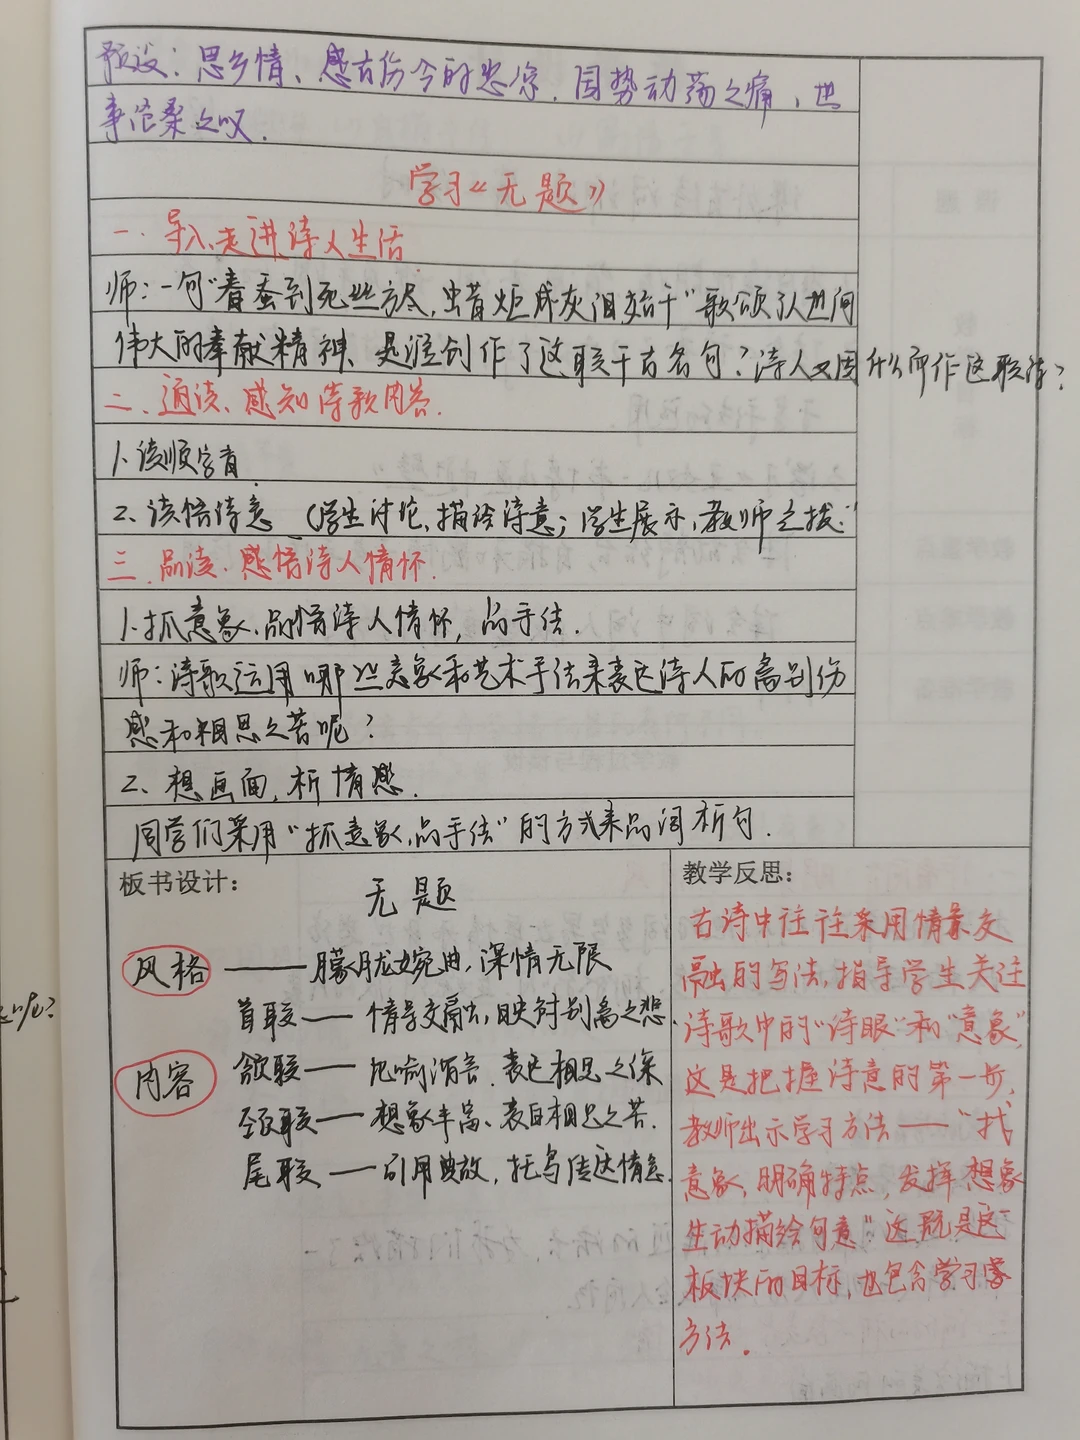 预设：思乡情、感古伤今的悲凉、国势动荡之痛，世
事沧桑之叹.
学习《无题》
一、导入、走进诗人生活
师：一句"春蚕到死丝方尽，蜡炬成灰泪始干"歌颂了人世间
伟大的奉献精神、是谁创作了这联千古名句？诗人又因什么而作这联诗？
二、通读、感知诗歌内容.
1.读顺字音
2、读悟诗意（学生讨论，描绘诗意；学生展示，教师点拨.
三、品读、感悟诗人情怀.
1.抓意象、品悟诗人情怀，品手法.
师：诗歌运用哪些意象和艺术手法来表达诗人的离别伤
感和相思之苦呢？
2、想画面，析情感.
同学们采用"抓意象，品手法"的方式来品词析句.
板书设计：
无题
风格——朦胧婉曲，深情无限
首联——情景交融，映衬别离之悲.
内容
颔联——比喻 表达相思之深
颈联——想象丰富、表白相思之苦.
尾联——引用典故，托鸟传达情意.
教学反思：
古诗中往往采用情景交
融的写法，指导学生关注
诗歌中的"诗眼"和"意象"，
这是把握诗意的第一步，
教师出示学习方法——"找
意象，明确特点，发挥想象
生动描绘句意"这既是这一
板块的目标，也包含学习
方法.
呢？